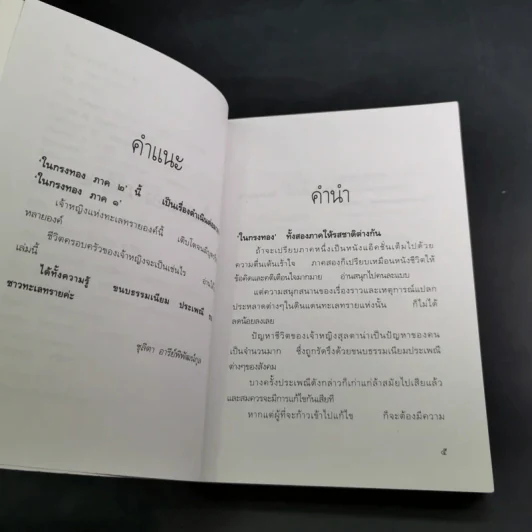 คำแนะ
'ในกรงทอง ภาค ๒' นี้ เป็นเรื่องดำเนินต่อ
'ในกรงทอง ภาค ๑'
เจ้าหญิงแห่งทะเลทรายองค์นี้ เติบโต
หลายองค์
ชีวิตครอบครัวของเจ้าหญิงจะเป็นเช่นไร
เล่มนี้
ได้ทั้งความรู้ ขนบธรรมเนียม ประเพณี
ชาวทะเลทรายค่ะ
ชุลีดา อารีย์พิพัฒน์กุล
คำนำ
'ในกรงทอง' ทั้งสองภาคให้รสชาติต่างกัน
ถ้าจะเปรียบภาคหนึ่งเป็นหนังแอ็คชั่นเต็มไปด้วย
ความตื่นเต้นเร้าใจ ภาคสองก็เปรียบเหมือนหนังชีวิตให้
ข้อคิดและคติเตือนใจมากมาย อ่านสนุกไปคนละแบบ
แต่ความสนุกสนานของเรื่องราวและเหตุการณ์แปลก
ประหลาดต่างๆในดินแดนทะเลทรายแห่งนั้น ก็ไม่ได้
ลดน้อยลงเลย
ปัญหาชีวิตของเจ้าหญิงสุลตาน่าเป็นปัญหาของคน
เป็นจำนวนมาก ซึ่งถูกรัดรึงด้วยขนบธรรมเนียมประเพณี
ต่างๆของสังคม
บางครั้งประเพณีดังกล่าวก็เก่าแก่ล้าสมัยไปเสียแล้ว
และสมควรจะมีการแก้ไขกันเสียที
หากแต่ผู้ที่จะก้าวเข้าไปแก้ไข ก็จะต้องมีความ
๕